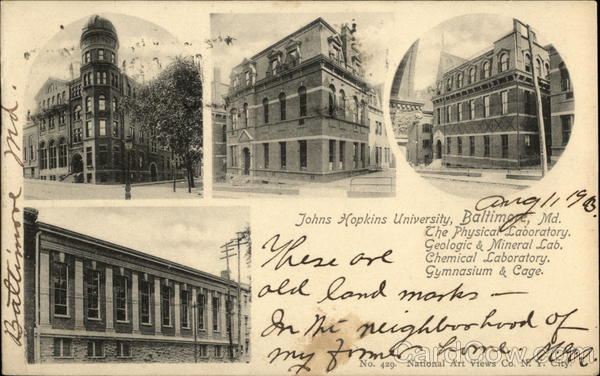 Baltimore Md.
Johns Hopkins University, Baltimore, Md.
Aug 11 1903.
The Physical Laboratory.
Geologic & Mineral Lab.
Chemical Laboratory.
Gymnasium & Cage.
These are
old land marks —
In the neighborhood of
my former home.
No. 429. National Art Views Co. N. Y. City.
CardCow.com